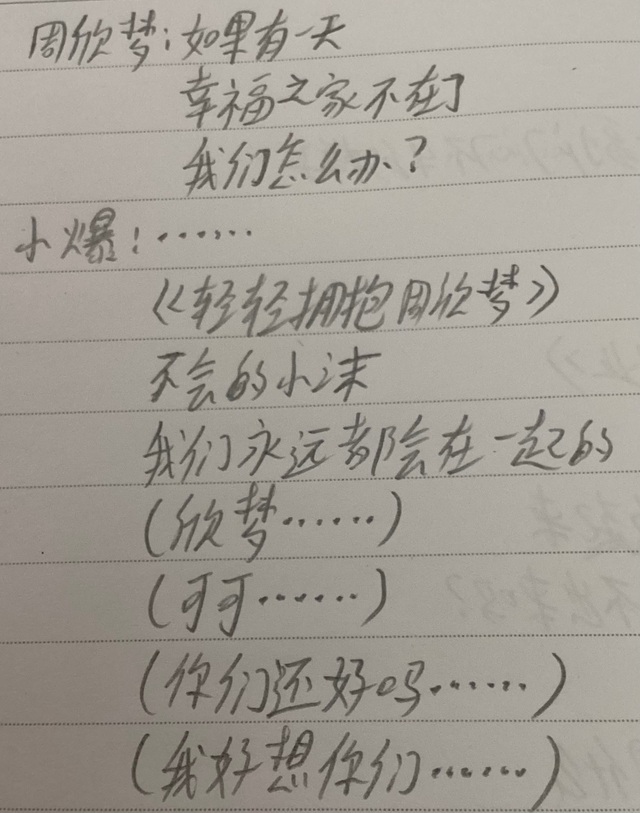 周欣梦：如果有一天
幸福之家不在了
我们怎么办？
小爆：……
《轻轻拥抱周欣梦》
不会的小沫
我们永远都会在一起的
(欣梦……)
(可可……)
(你们还好吗……)
(我好想你们……)